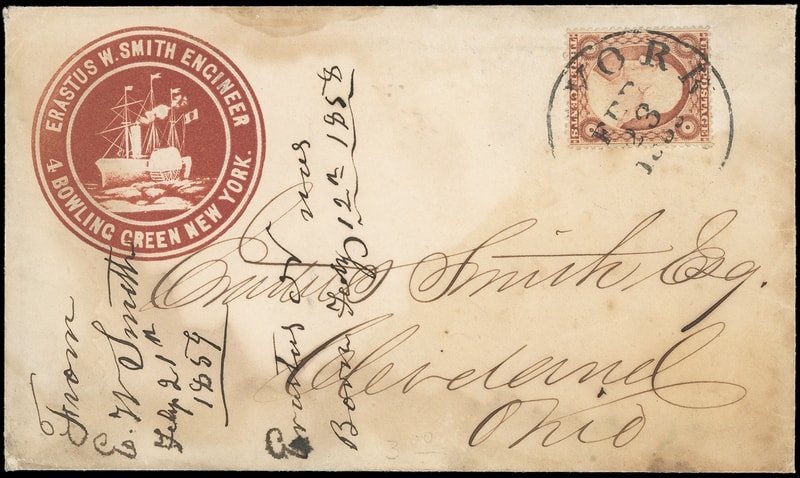 ERASTUS W. SMITH ENGINEER
4 BOWLING GREEN NEW YORK.
YORK
FEB
23
Smith Esq.
Cleveland
Ohio
From
E. W. Smith
Feby 21st
1859
Erastus W was
Born Feby 12th 1858